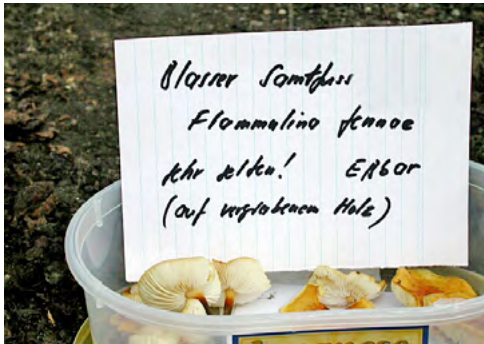 Blasser Samtfuss
Flammulina fennae
sehr selten! Eßbar
(auf vergrabenem Holz)